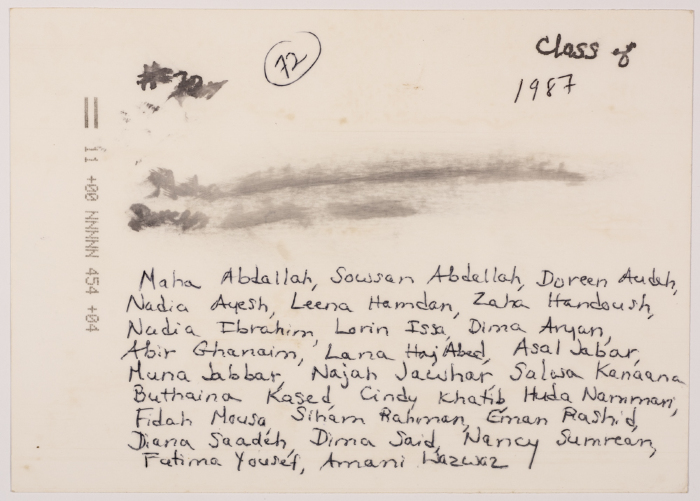 72
Class of
1987
#70
11 +00 NNNNN 454 +04
Maha Abdallah, Sowsan Abdallah, Doreen Audeh,
Nadia Ayesh, Leena Hamdan, Zaha Handoush,
Nadia Ibrahim, Lorin Issa, Dima Aryan,
Abir Ghanaim, Lana Haj Abed, Asal Jabar,
Muna Jabbar, Najah Jawhar Salwa Kanaana
Buthaina Kased Cindy Khatib Huda Namman,
Fidah Mousa Siham Rahman, Eman Rashid,
Diana Saadeh, Dima Said, Nancy Sumrean,
Fatima Yousef, Amani Wazwaz